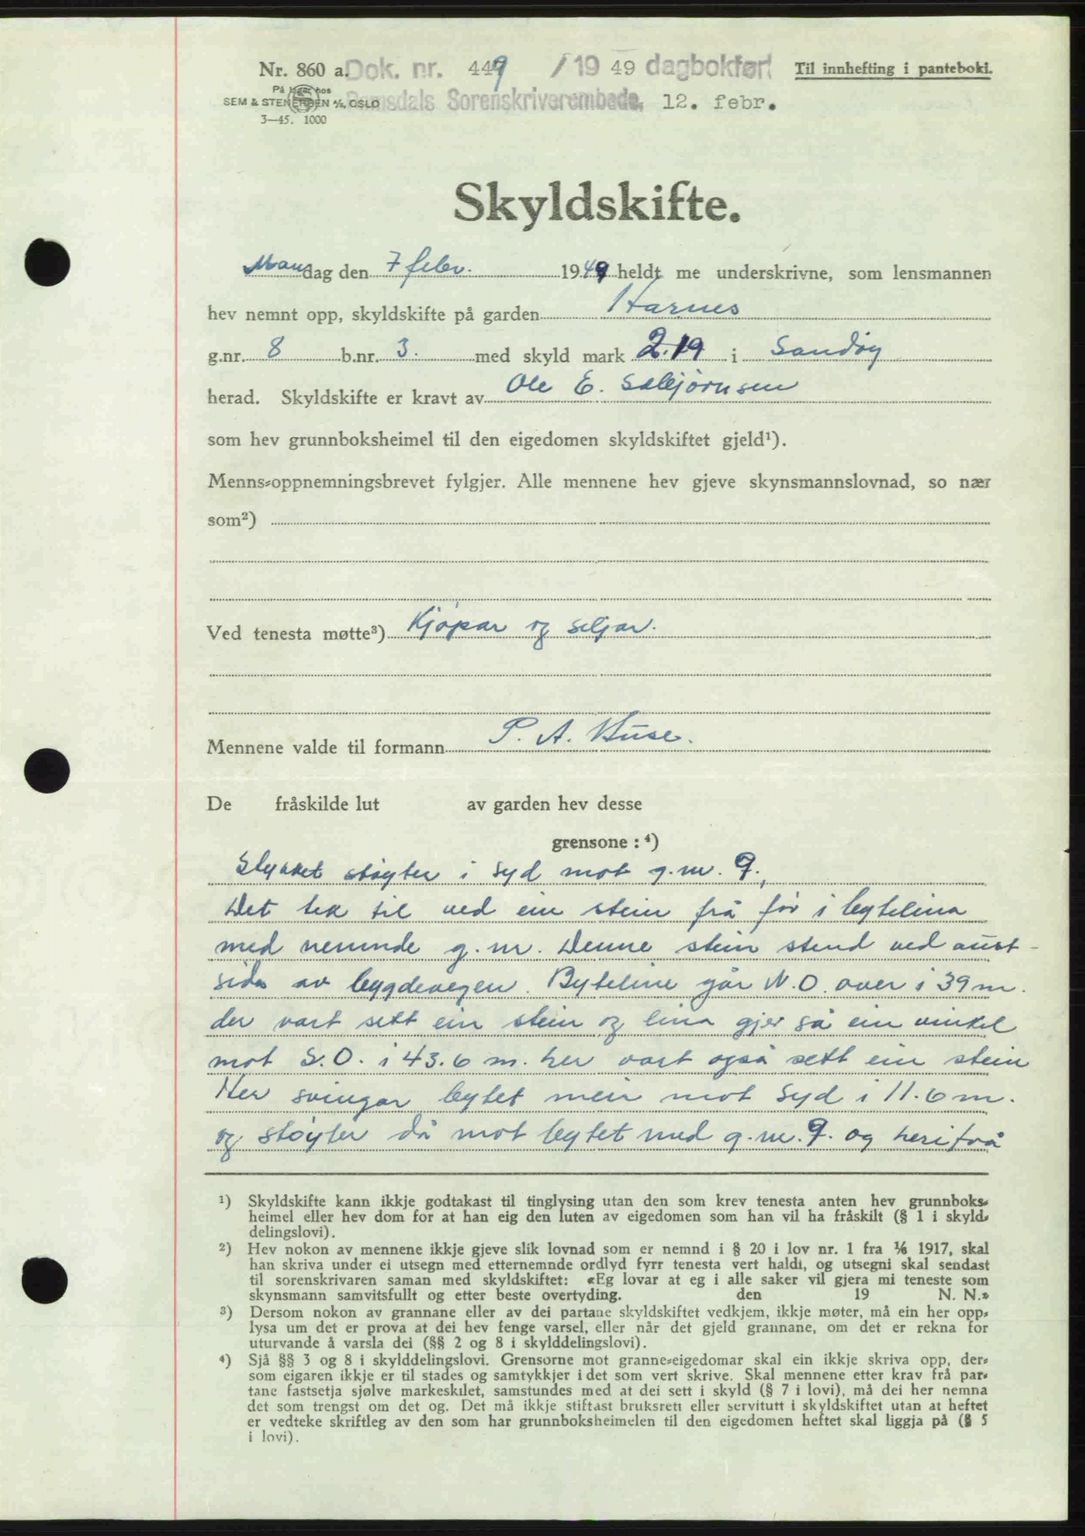 Nr. 860 a. Dok. nr. 449 / 19 49 dagbokført Til innhefting i panteboki.
På lager hos
SEM & STENERSEN A/S, OSLO Romsdals Sorenskriverembede, 12. febr.
3—45. 1000
Skyldskifte.
Mandag den 7 febr. 1949 heldt me underskrivne, som lensmannen
hev nemnt opp, skyldskifte på garden Harnes
g.nr. 8 b.nr. 3. med skyld mark 2.19 i Sandøy
herad. Skyldskifte er kravt av Ole E. Sæbjørnsen
som hev grunnboksheimel til den eigedomen skyldskiftet gjeld¹).
Menns-oppnemningsbrevet fylgjer. Alle mennene hev gjeve skynsmannslovnad, so nær
som²)
Ved tenesta møtte³) Kjøpar og seljar.
Mennene valde til formann P. A. Huse.
De fråskilde lut av garden hev desse
grensone : ⁴)
Stykket støyter i syd mot g.nr. 9.
Det tek til ved ein stein frå før i bytelina
med nemnde g.nr. Denne stein stend ved aust-
sida av bygdevegen. Byteline går N.O. over i 39 m.
der vart sett ein stein og lina gjer så ein vinkel
mot S.O. i 43.6 m. her vart også sett ein stein
Her svingar bytet meir mot Syd i 11.6 m.
og støyter då mot bytet med g.nr. 9. og herifrå
¹) Skyldskifte kann ikkje godtakast til tinglysing utan den som krev tenesta anten hev grunnboks-
heimel eller hev dom for at han eig den luten av eigedomen som han vil ha fråskilt (§ 1 i skyld-
delingslovi).
²) Hev nokon av mennene ikkje gjeve slik lovnad som er nemnd i § 20 i lov nr. 1 fra 1/6 1917, skal
han skriva under ei utsegn med etternemnde ordlyd fyrr tenesta vert haldi, og utsegni skal sendast
til sorenskrivaren saman med skyldskiftet: «Eg lovar at eg i alle saker vil gjera mi teneste som
skynsmann samvitsfullt og etter beste overtyding. den 19 N. N.»
³) Dersom nokon av grannane eller av dei partane skyldskiftet vedkjem, ikkje møter, må ein her opp-
lysa um det er prova at dei hev fenge varsel, eller når det gjeld grannane, om det er rekna for
uturvande å varsla dei (§§ 2 og 8 i skylddelingslovi).
⁴) Sjå §§ 3 og 8 i skylddelingslovi. Grensorne mot granne-eigedomar skal ein ikkje skriva opp, der-
som eigaren ikkje er til stades og samtykkjer i det som vert skrive. Skal mennene etter krav frå par-
tane fastsetja sjølve markeskilet, samstundes med at dei sett i skyld (§ 7 i lovi), må dei her nemna
det som trengst om det og. Det må ikkje stiftast bruksrett eller servitutt i skyldskiftet utan at heftet
er vedteke skriftleg av den som har grunnboksheimelen til den eigedomen heftet skal liggja på (§ 5
i lovi).